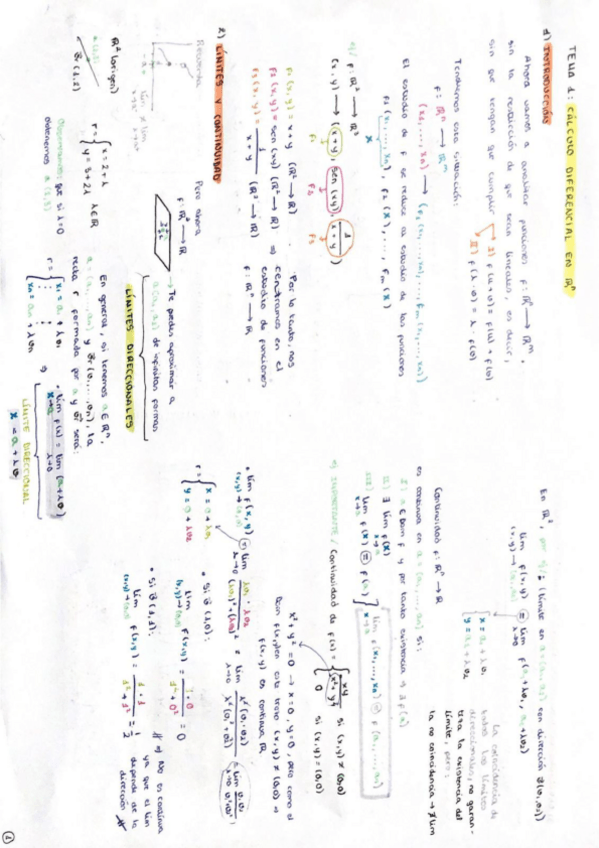 TEMA 1: CÁLCULO DIFERENCIAL EN ℝⁿ
1) INTRODUCCIÓN
Ahora vamos a analizar funciones f: ℝⁿ → ℝᵐ,
sin la restricción de que sean lineales, es decir,
sin que tengan que cumplir I) f(u+v) = f(u) + f(v)
II) f(λ·v) = λ·f(v)
Tendremos esta situación:
f: ℝⁿ → ℝᵐ
(x₁, ..., xₙ) → (f₁(x₁, ..., xₙ), ..., fₘ(x₁, ..., xₙ))
El estudio de f se reduce al estudio de las funciones
f₁(x₁, ..., xₙ), f₂(x), ..., fₘ(x)
x
ej/ f: ℝ² → ℝ³
(x, y) → (x+y, sen(xy), 1/(x+y))
f₁ f₂ f₃
f₁(x,y) = x+y (ℝ² → ℝ)
f₂(x,y) = sen(xy) (ℝ² → ℝ) ⇒
f₃(x,y) = 1/(x+y) (ℝ² → ℝ)
Por lo tanto, nos
centramos en el
estudio de funciones
f: ℝⁿ → ℝ
2) LÍMITES Y CONTINUIDAD
Recuerda
Pero ahora
f: ℝ² → ℝ
→ Te puedes aproximar a
a(a₁, a₂) de infinitas formas
LÍMITES DIRECCIONALES
ℝ² (origen)
v⃗(1,2)
r ≡ { x = 2+λ
y = 3+2λ λ∈ℝ
Observamos que si λ=0
obtenemos
En general, si tenemos a∈ℝⁿ,
a = (a₁, ..., aₙ) y v⃗(v₁, ..., vₙ), la
recta r formada por a y v⃗ será:
r ≡ { x₁ = a₁ + λv₁
xₙ = aₙ + λvₙ
⇒ • lim x→a f(x) = lim λ→0 f(a+λv)
x = a + λv
LÍMITE DIRECCIONAL
En ℝ², por ej/ ¿límite en a=(a₁,a₂) con dirección v⃗(v₁,v₂)?
lim (x,y)→(a₁,a₂) f(x,y) = lim λ→0 f(a₁+λv₁, a₂+λv₂)
{ x = a₁+λv₁
y = a₂+λv₂
La coincidencia de
todos los límites
direccionales, no garan-
tiza la existencia del
límite, pero:
la no coincidencia → ∄ lim
Continuidad f: ℝⁿ → ℝ
es continua en a = (a₁, ..., aₙ) si:
I) a ∈ Dom f y por tanto existencia ∃ f(a)
II) ∃ lim x→a f(x)
III) lim x→a f(x) = f(a)
lim x→a f(x₁, ..., xₙ) = f(a₁, ..., aₙ)
ej IMPORTANTE / Continuidad de f(x) = { xy/(x²+y²) si (x,y) ≠ (0,0)
0 si (x,y) = (0,0)
x²+y² = 0 → x=0, y=0, pero como el
(x,y) ≠ (0,0) ⇒
f(x,y) es continua ℝ
• lim (x,y)→(0,0) f(x,y) = lim λ→0 λv₁·λv₂/((λv₁)²+(λv₂)²) = lim λ→0 λ²(v₁·v₂)/λ²(v₁²+v₂²) = lim λ→0 v₁v₂/(v₁²+v₂²)
r ≡ { x = 0+λv₁
y = 0+λv₂
• Si v⃗(1,0):
lim (x,y)→(0,0) f(x,y) = 1·0/(1²+0²) = 0
• Si v⃗(1,1):
lim (x,y)→(0,0) f(x,y) = 1·1/(1²+1²) = 1/2
⇒ No es continua
ya que el lím
depende de la
dirección
1